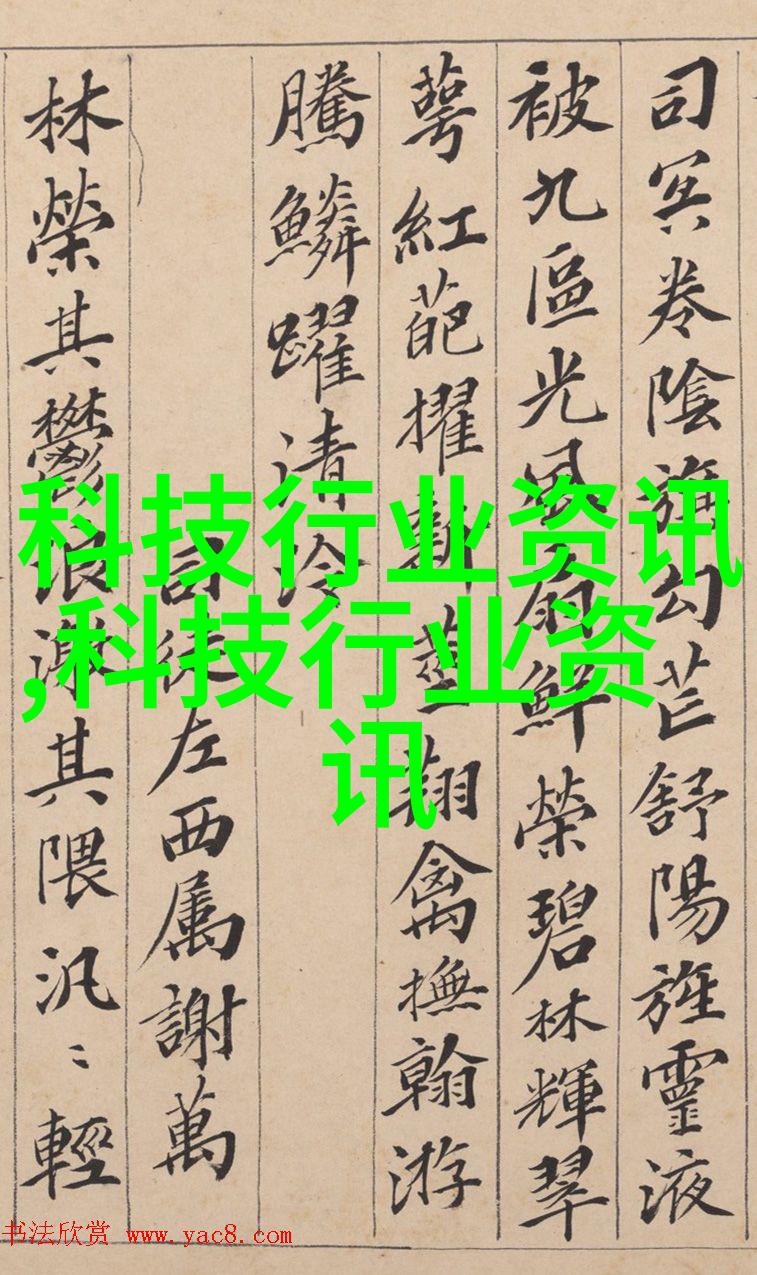 司冥卷陰旗勾芒舒陽旌靈液
被九區光風扇鮮榮碧林輝翠
萼紅葩擢新莖翔禽撫翰游
騰鱗躍清泠
司徒左西属謝萬
林榮其鬱浪激其隈汎〻輕
科技行业资讯
,科技行业资
讯
书法欣赏 www.yac8.com